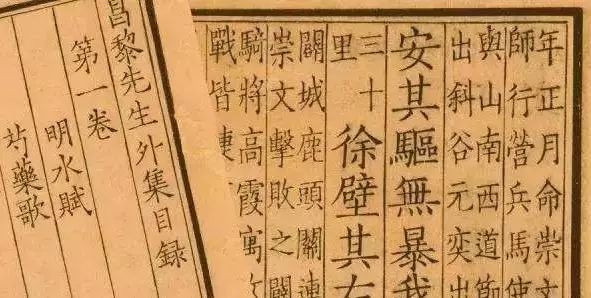 年正月命崇文
師行營兵馬使
與山南西道節
出斜谷元奕出
安其驅無暴我
三十
里
徐壁其右
關城鹿頭關連
崇文擊敗之關
騎將高霞寓攻
戰皆捷
昌黎先生外集目錄
第一卷
明水賦
芍藥歌